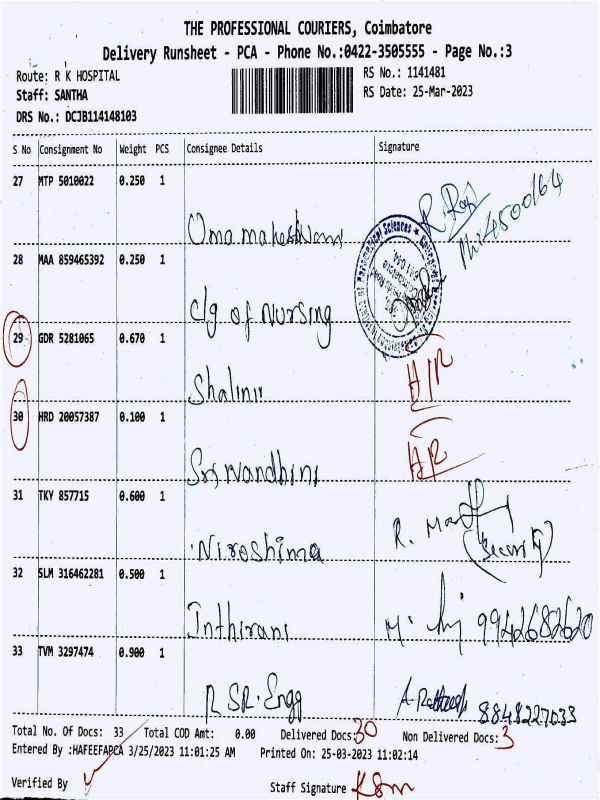 THE PROFESSIONAL COURIERS, Coimbatore
Delivery Runsheet - PCA - Phone No.:0422-3505555 - Page No.:3
Route: R K HOSPITAL
RS No.: 1141481
Staff: SANTHA
RS Date: 25-Mar-2023
DRS No.: DCJB114148103
S No Consignment No Weight PCS Consignee Details Signature
27 MTP 5010022 0.250 1
Uma maheshwari
28 MAA 859465392 0.250 1
clg of Nursing
29 GDR 5281065 0.670 1
Shalini
30 HRD 20057387 0.100 1
Srinandhini
31 TKY 857715 0.600 1
Niroshima
R.
(Security)
32 SLM 316462281 0.500 1
Inthirani
9942682620
33 TVM 3297474 0.900 1
R SR. Engg
8848227033
Total No. Of Docs: 33 Total COD Amt: 0.00 Delivered Docs: 30 Non Delivered Docs: 3
Entered By :HAFEEFAPCA 3/25/2023 11:01:25 AM Printed On: 25-03-2023 11:02:14
Verified By
Staff Signature